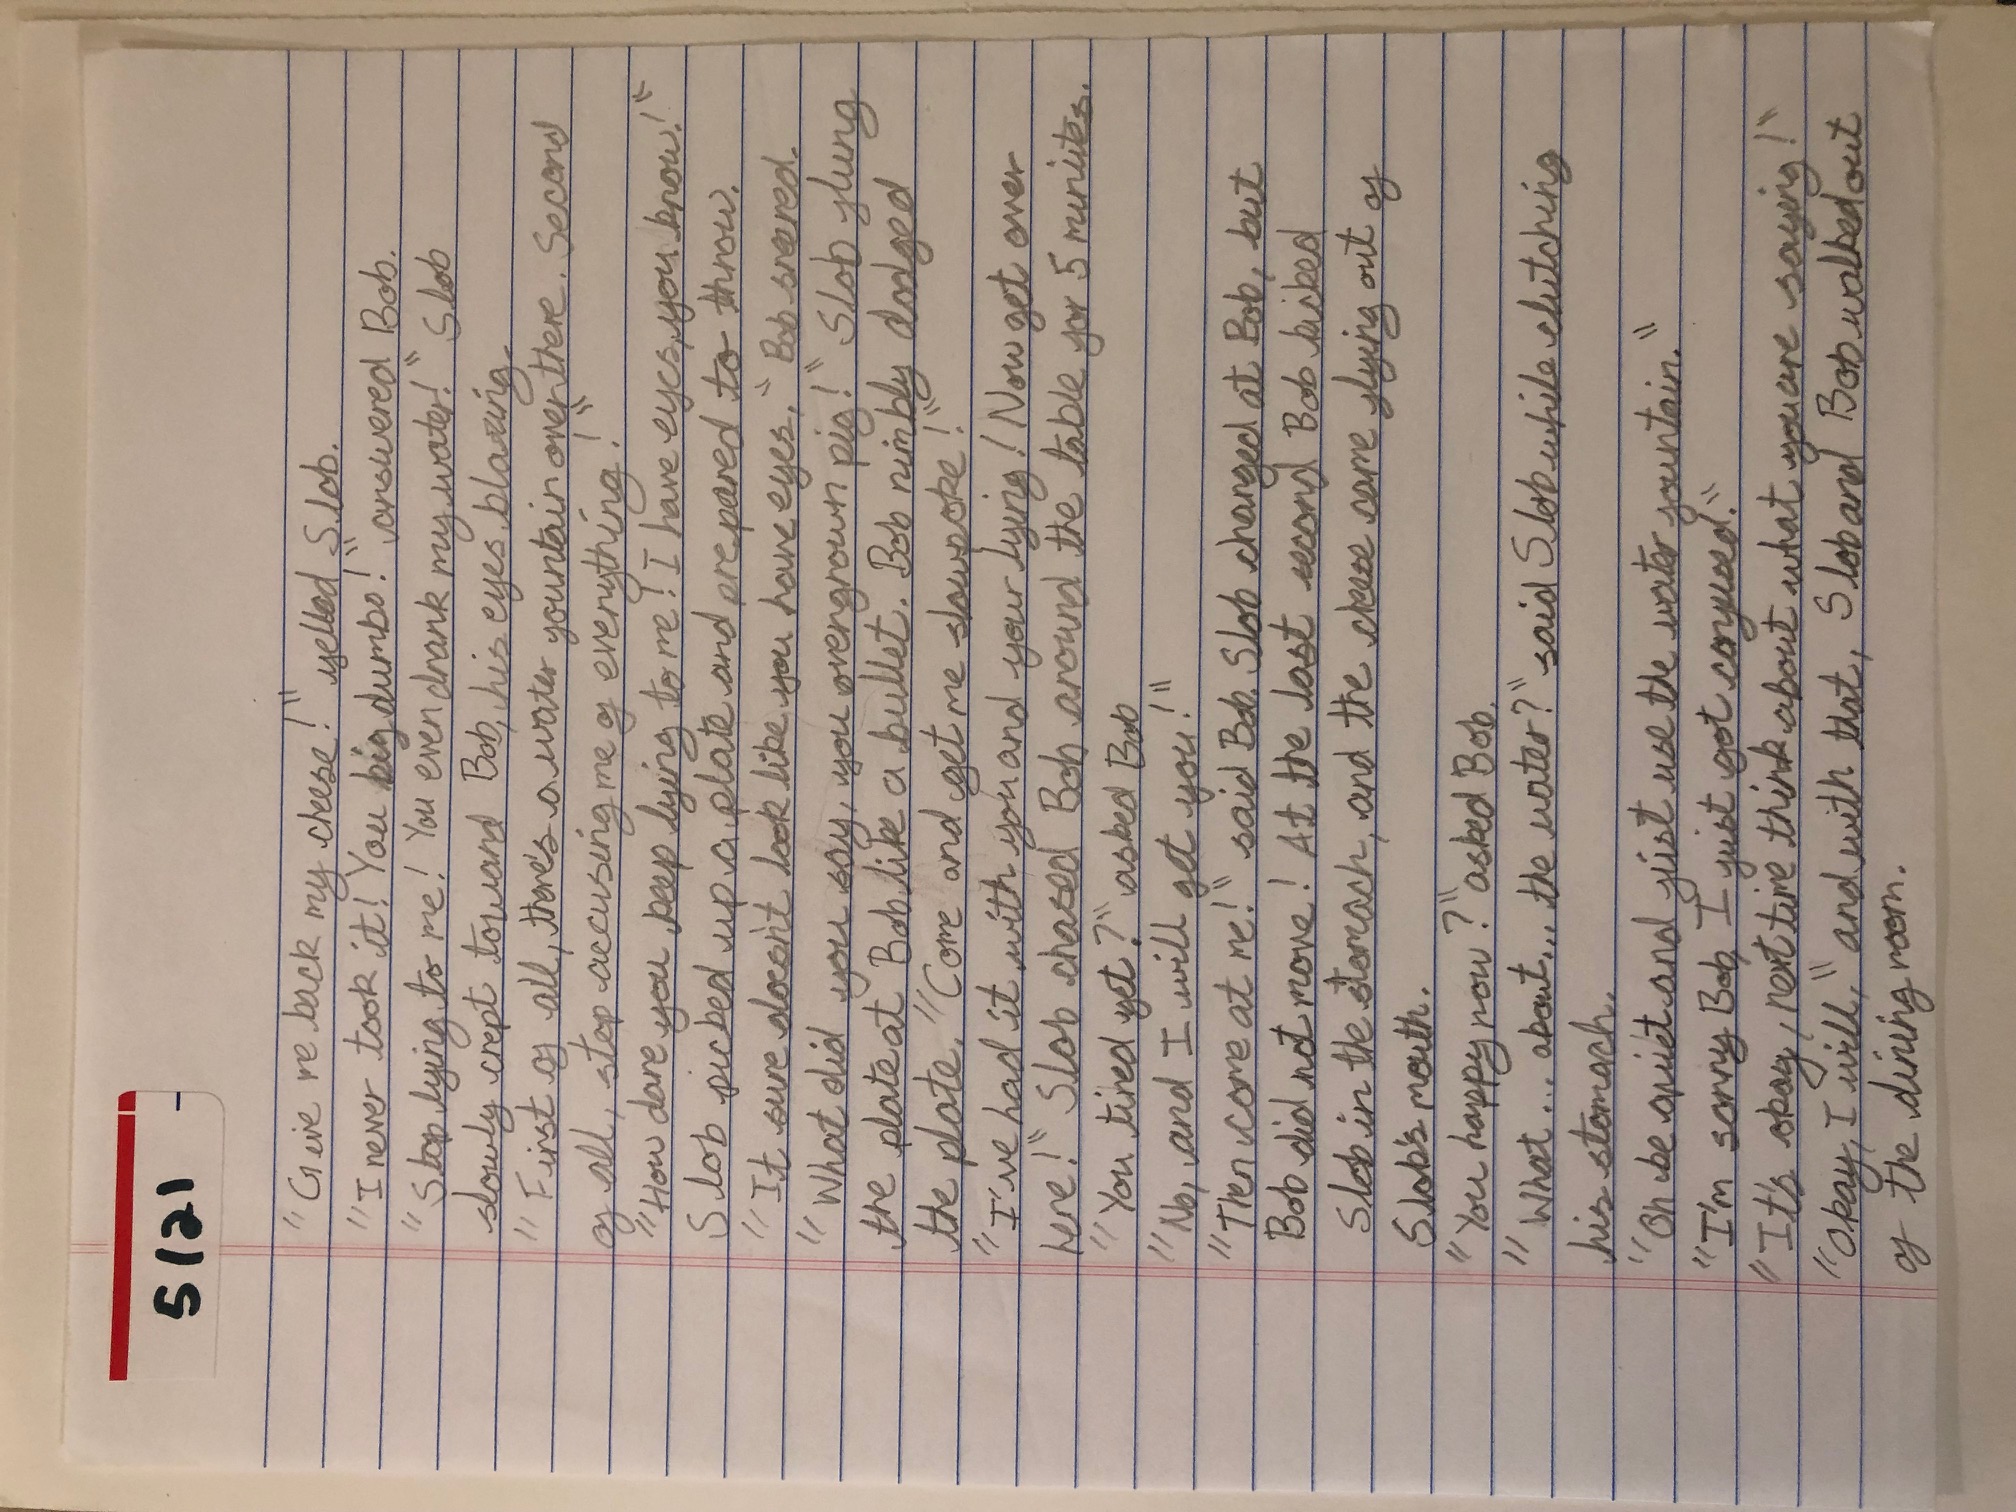 5121
"Give me back my cheese!" yelled Slob.
"I never took it! You big dumbo!" answered Bob.
"Stop lying to me! You even drank my water!" Slob
slowly crept toward Bob, his eyes blazing.
"First of all, there's a water fountain over there. Second
of all, stop accusing me of everything!"
"How dare you keep lying to me! I have eyes, you know!"
Slob picked up a plate and prepared to throw.
"It sure doesn't look like you have eyes," Bob sneered.
"What did you say, you overgrown pig!" Slob flung
the plate at Bob like a bullet. Bob nimbly dodged
the plate. "Come and get me slowpoke!"
"I've had it with you and your lying! Now get over
here!" Slob chased Bob around the table for 5 minutes.
"You tired yet?" asked Bob
"No, and I will get you!"
"Then come at me!" said Bob. Slob charged at Bob, but
Bob did not move! At the last second Bob kicked
Slob in the stomach, and the cheese came flying out of
Slob's mouth.
"You happy now?" asked Bob.
"What... about... the water?" said Slob while clutching
his stomach.
"Oh be quiet and just use the water fountain."
"I'm sorry Bob, I just got confused."
"It's okay, next time think about what you are saying!"
"Okay, I will," and with that, Slob and Bob walked out
of the dining room.